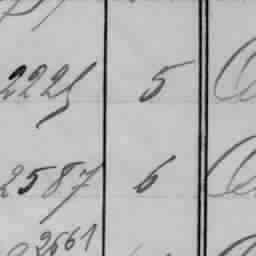 2225 5
2587 6
2561